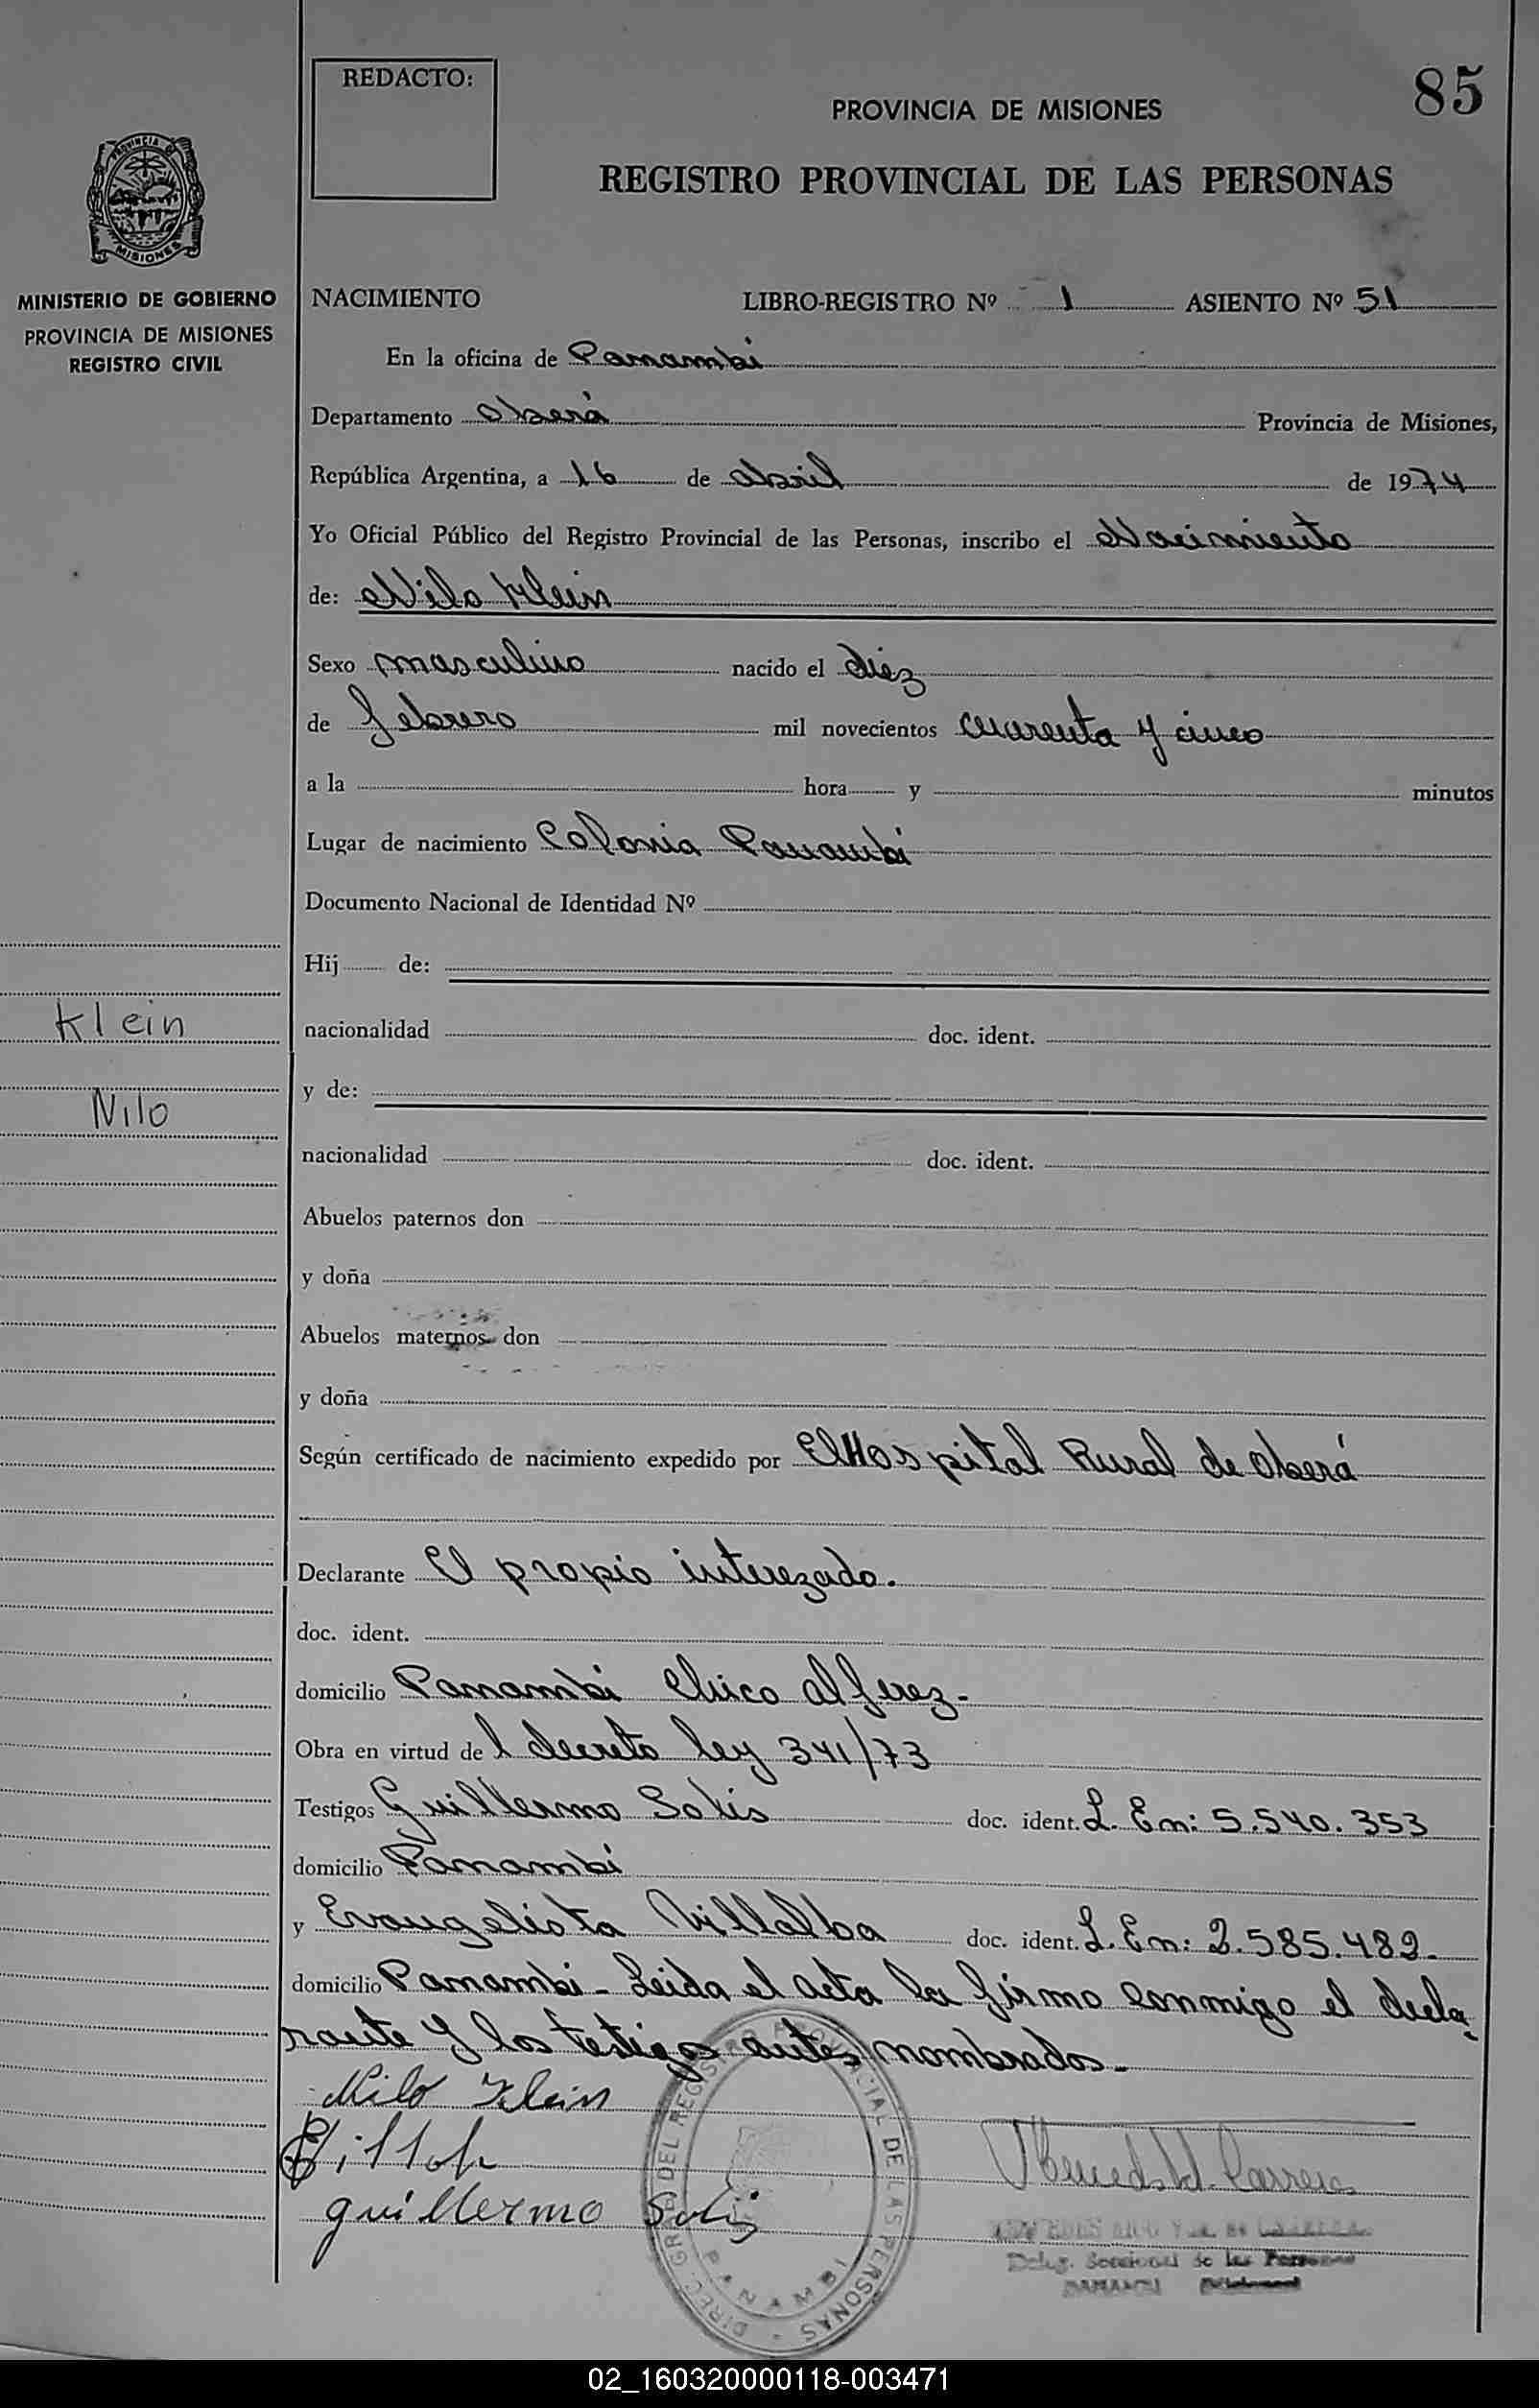 REDACTO:
85
PROVINCIA DE MISIONES
REGISTRO PROVINCIAL DE LAS PERSONAS
PROVINCIA DE
MISIONES
MINISTERIO DE GOBIERNO
PROVINCIA DE MISIONES
REGISTRO CIVIL
NACIMIENTO LIBRO-REGISTRO Nº 1 ASIENTO Nº 51
En la oficina de Panambí
Departamento Oberá Provincia de Misiones,
República Argentina, a 16 de abril de 1974
Yo Oficial Público del Registro Provincial de las Personas, inscribo el Nacimiento
de: Nilo Klein
Sexo masculino nacido el diez
de febrero mil novecientos cuarenta y cinco
a la hora y minutos
Lugar de nacimiento Colonia Panambí
Documento Nacional de Identidad Nº
Hij de:
Klein
nacionalidad doc. ident.
y de:
Nilo
nacionalidad doc. ident.
Abuelos paternos don
y doña
Abuelos maternos don
y doña
Según certificado de nacimiento expedido por El Hospital Rural de Oberá
Declarante El propio interezado.
doc. ident.
domicilio Panambí Chico Alferez-
Obra en virtud de l decreto ley 341/73
Testigos Guillermo Solis doc. ident. L. En: 5.540.353
domicilio Panambí
y Evangelista Villalba doc. ident. L. En: 2.585.489-
domicilio Panambí - Leida el acta la firmo conmigo el decla-
rante y los testigos antes nombrados-
Nilo Klein
guillermo Solis
DIREC. GRAL DEL REGISTRO PROVINCIAL DE LAS PERSONAS -
PANAMBI
Deleg. Seccional de las Personas
PANAMBI
02_160320000118-003471